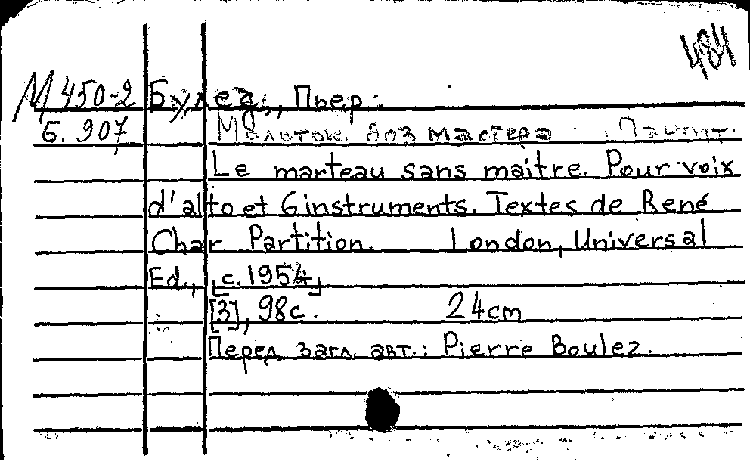 484
М450-2 Булез, Пьер.
Б. 907 Молоток без мастера
Le marteau sans maitre. Pour voix
d'alto et 6 instruments. Textes de René
Char Partition. London, Universal
Ed., [c. 1954]
[3], 98с. 24cm
Перед загл. авт.: Pierre Boulez.